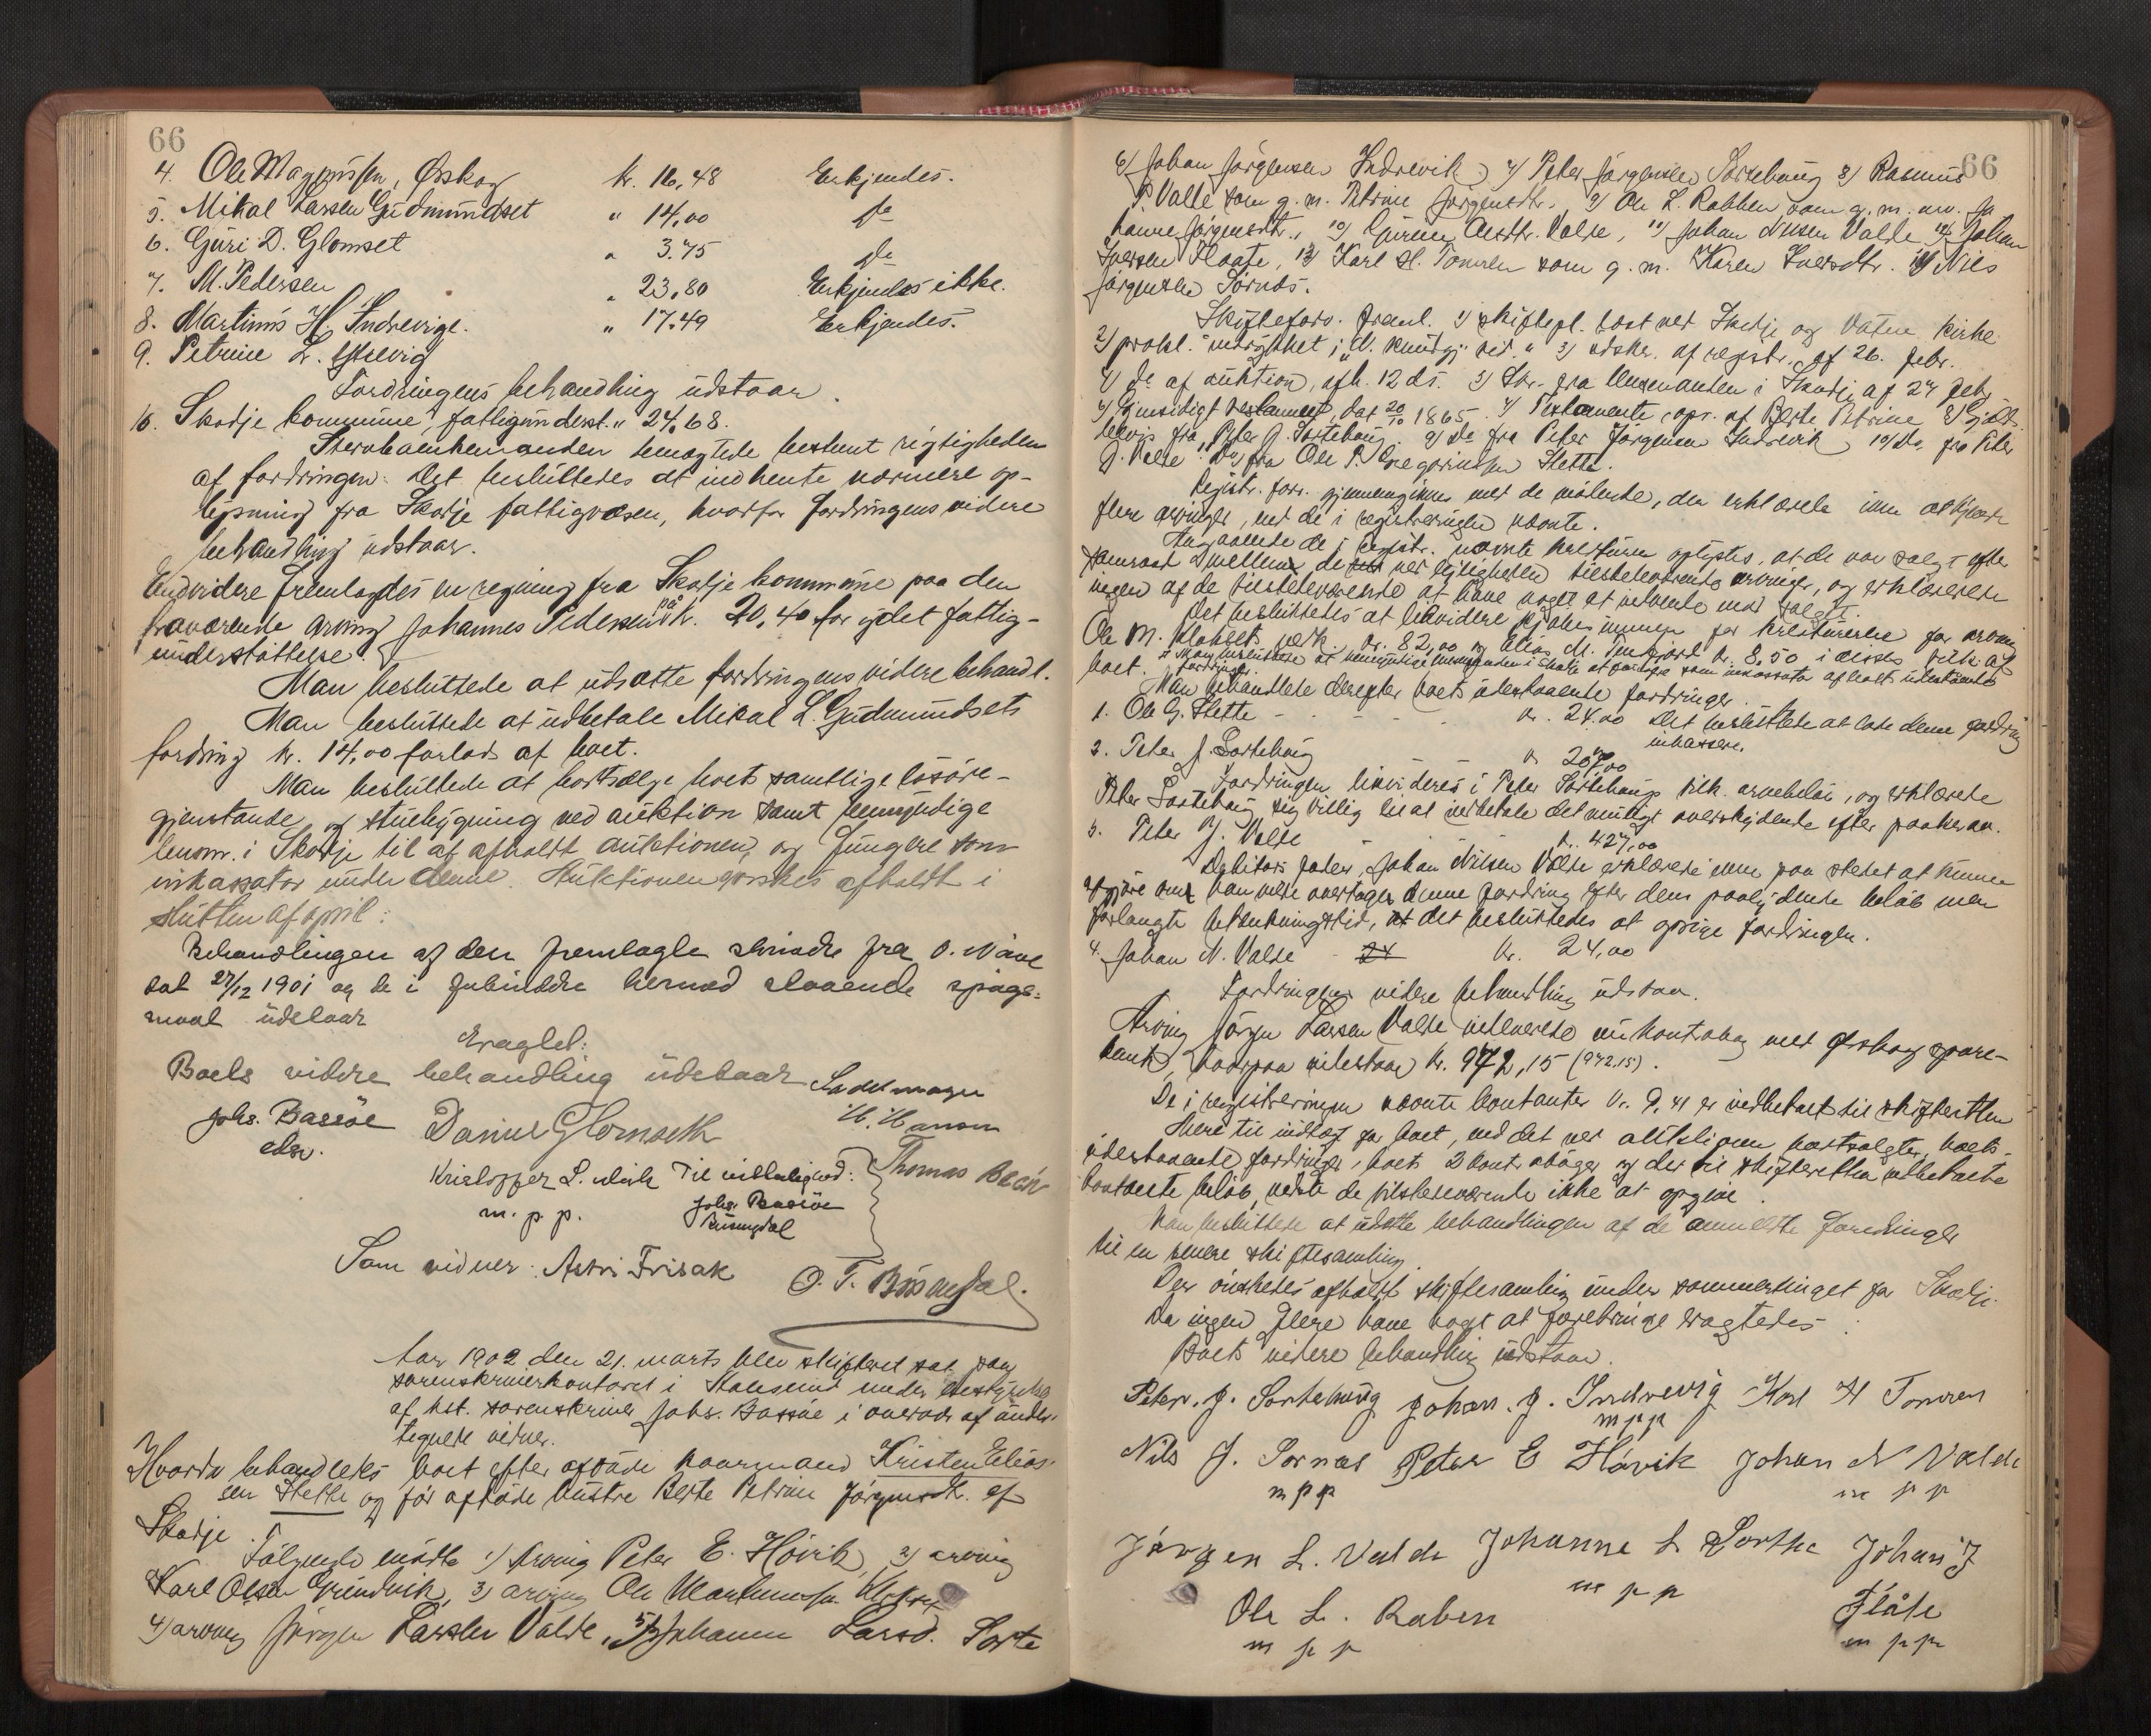 66
4. Ole Magnussen, Ørskog kr. 16,48 Erkjendes.
5. Mikal Larsen Gudmundset " 14,00 do
6. Guri D. Glomset " 3.75 do
7. M. Pedersen " 23,80 Erkjendes ikke.
8. Martinus H. Indrevige. " 17.49 Erkjendes.
9. Petrine L.
Fordringens behandling udstaar.
10. Skodje kommune, fattigunderst. " 24,68.
benægtede bestemt rigtigheden
af fordringen. Det besluttedes at indhente nærmere op-
lysning fra Skodje fattigvæsen, hvorfor fordringens videre
behandling udstaar.
Endvidere fremlagdes en regning fra Skodje kommune paa den
fraværende arving Johannes Pedersen på kr. 20,40 for ydet fattig-
understøttelse.
Man besluttede at udsætte fordringens videre behandl.
Man besluttede at udbetale Mikal L. Gudmundsets
fordring kr. 14,00 forlods af boet.
Man besluttede at bortsælge boets samtlige løsøre-
gjenstande og stuebygning ved auktion samt bemyndige
lensm. i Skodje til at afholdt auktionen, og fungere som
inkassator under denne. Auktionen ønskes afholdt i
slutten af april.
Behandlingen af den fremlagte skrivelse fra O. Nauve
dat 27/12 1901 og de i forbindelse hermed staaende spørgs-
maal udstaar
Eragtet:
Boets videre behandling udstaar
Johs. Bassøe
edsv.
Darius Glomseth
Sadelmager
H. Hansen
Kristoffer L.
m. p. p.
Til vitterlighed:
Johs. Bassøe
Thomas
Som vidner: Astri Frisak O. T. Røsendal.
Aar 1902 den 21. marts blev skifteret sat paa
sorenskriverkontoret i Aalesund under bestyrelse
af kst. sorenskriver Johs. Bassøe i overvær af under-
tegnede vidner.
Hvorda behandledes boet efter afdøde kaarmand Kristen Elias-
sen Slette og før afdøde hustru Berte Petrine Jørgensdtr. af
Skodje.
Følgende mødte 1) Arving Peter E. Høivik, 2) arving
Karl Olsen Grindvik, 3) arving Ole Martinussen Klokset
4) arving Jørgen Larsen Valde, 5) Johanne Larsd. Sorte
66
6) Johan Jørgensen Indrevik, 7) Peter Jørgensen Sortehaug 8) Rasmus
P. Valle som g. m. Petrine Jørgensdtr. 9) Ole L. Rabben som g. m. arv. Jo
hanne Jørgensdtr., 10) Olesdtr. Valde, 11) Johan Nilsen Valde 12) Johan
Iversen Flaate, 13) Karl H. Tomren som g. m. Karen Iversdtr. 14) Nils
Jørgensen Sørnes.
Skifteforv. freml. 1) skiftepl. læst ved Skodje og Vatne kirke
2) prokl. indrykket i "N. Kundgj. tid." 3) udskr. af registr. af 26. febr.
4) do af auktion, afh. 12 ds. 5) Skr. fra lensmanden i Skodje af 27 febr.
6) Gjensidigt testament, dat 20/10 1865. 7) Testamente, opr. af Berte Petrine 8) Gjælds-
bevis fra Peter J. Sortehaug. 9) Do fra Peter Jørgensen Indrevik 10) Do. fra Peter
J. Valde 11) Do fra Ole P. Gregoriussen Slette.
Registr. forr. gjennemgikkes med de mødende, der erklærede ikke at kjende
flere arvinger, end de i registreringen nævnte.
Angaaende de i registr. nævnte kreaturer oplystes, at de var solgt efter
samraad mellem de ved leiligheden tilstedeværende arvinger, og erklærede
ingen af de tilstedeværende at have noget at indvende mod salget.
Det besluttedes at likvidere kjøbesummen for kreaturerne for arving
Ole M. Kloksets vedk. kr. 82,00 og Elias M. Tenfjord kr. 8,50 i disses tilk. af
boet. Man besluttede at bemyndige lensmanden i Skodje at fungere som inkassator af boets udestaaende
fordringer.
Man behandlede derefter boets udestaaende fordringer.
1. Ole G. Slette - - - - kr. 24.00 Det besluttedes at lade denne fordring
inkassere.
2. Peter J. Sortehaug kr. 207,00
Fordringen likvideres i Peter Sortehaugs tilk. arvebeløb, og erklærede
Peter Sortehaug sig villig til at indbetale det muligt overskydende efter paakrav.
3. Peter J. Valde - - - kr. 427,00
Debitors fader, Johan Nilsen Valde erklærede ikke paa stedet at kunne
afgjøre om han vilde overtage denne fordring efter dens paalydende beløb men
forlangte betænkningstid, at det besluttedes at opsige fordringen.
4. Johan N. Valde - 24 kr. 24,00
Fordringens videre behandling udstaar.
Arving Jørgen Larsen Valde indleverede en kontrabog med Ørskog spare-
bank, hvorpaa indestaar kr. 972,15 (972.15).
De i registreringen nævnte kontanter kr. 9,41 er indbetalt til skifteretten
Mere til indtægt for boet, end det ved auktionen bortsolgte, boets
udestaaende fordringer, boets 2 kontrabøger og det til skifteretten indbetalte
kontante beløb, vidste de tilstedeværende ikke at opgive.
Man besluttede at udsætte behandlingen af de anmeldte fordringer
til en senere skiftesamling.
Der ønskedes afholdt skiftesamling under sommertinget for Skodje.
Da ingen flere havde noget at forebringe eragtedes:
Boets videre behandling udstaar.
Peter. J. Sortehaug Johan. J. Indrevig Karl H Tomren
m p p
Nils J. Sørnes Peter E Høivik Johan N Valde
m p p m p p
Jørgen L. Valde Johanne L Sorthe Johan J
m p p Flåte
Ole L. Raben m p p
m p p